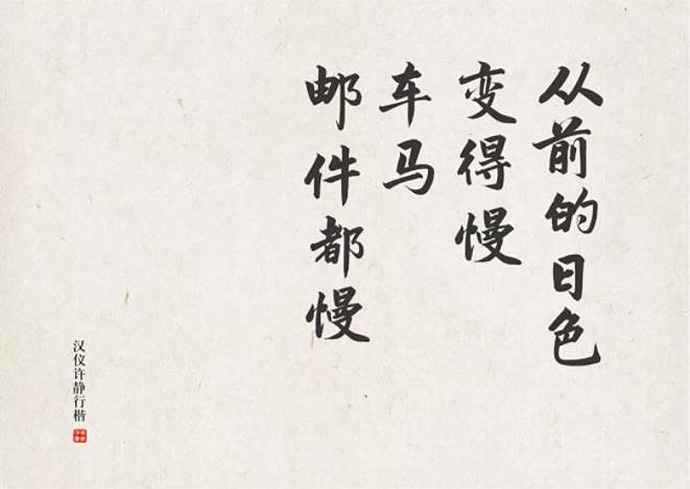 从前的日色
变得慢
车马
邮件都慢
汉仪许静行楷